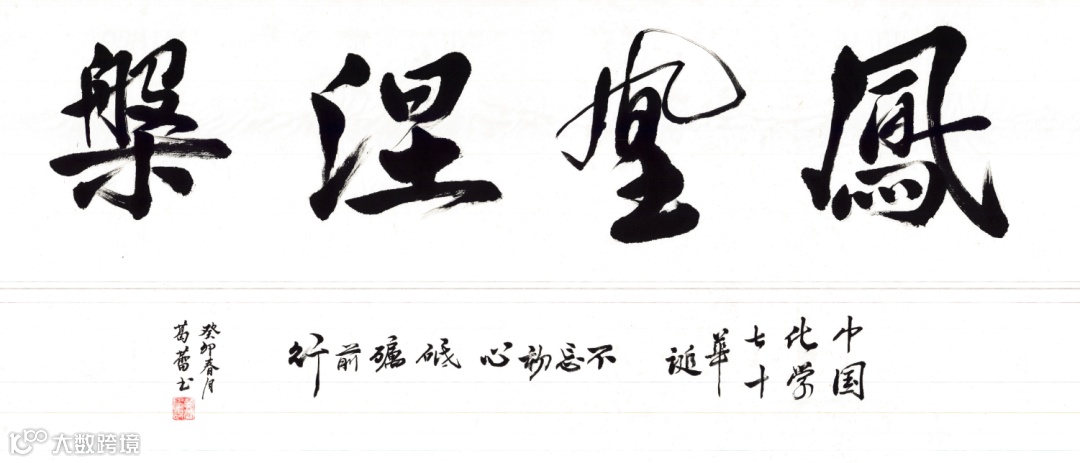 鳳凰涅槃
中国化学七十華誕
不忘初心 砥礪前行
癸卯春月
葛蕾书
大数跨境